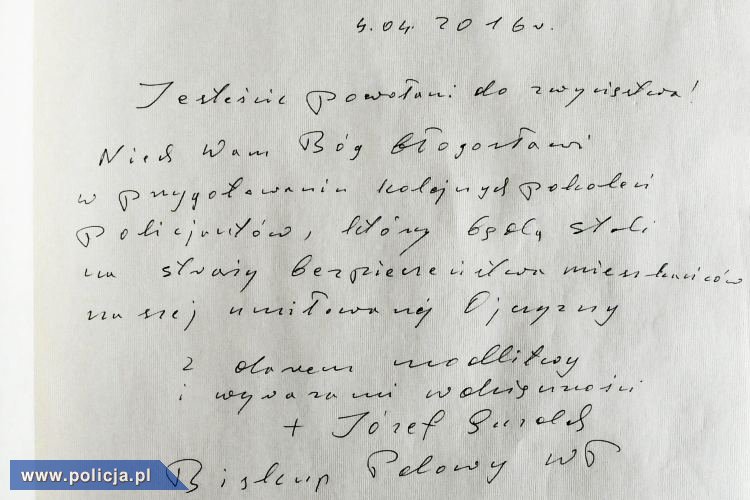 4.04.2016r.
Jesteście powołani do zwycięstwa!
Niech Wam Bóg błogosławi
w przygotowaniu kolejnych pokoleń
policjantów, którzy będą stali
na straży bezpieczeństwa mieszkańców
naszej umiłowanej Ojczyzny
z darem modlitwy
i wyrazami wdzięczności
+ Józef Guzdek
Biskup Polowy WP
www.policja.pl